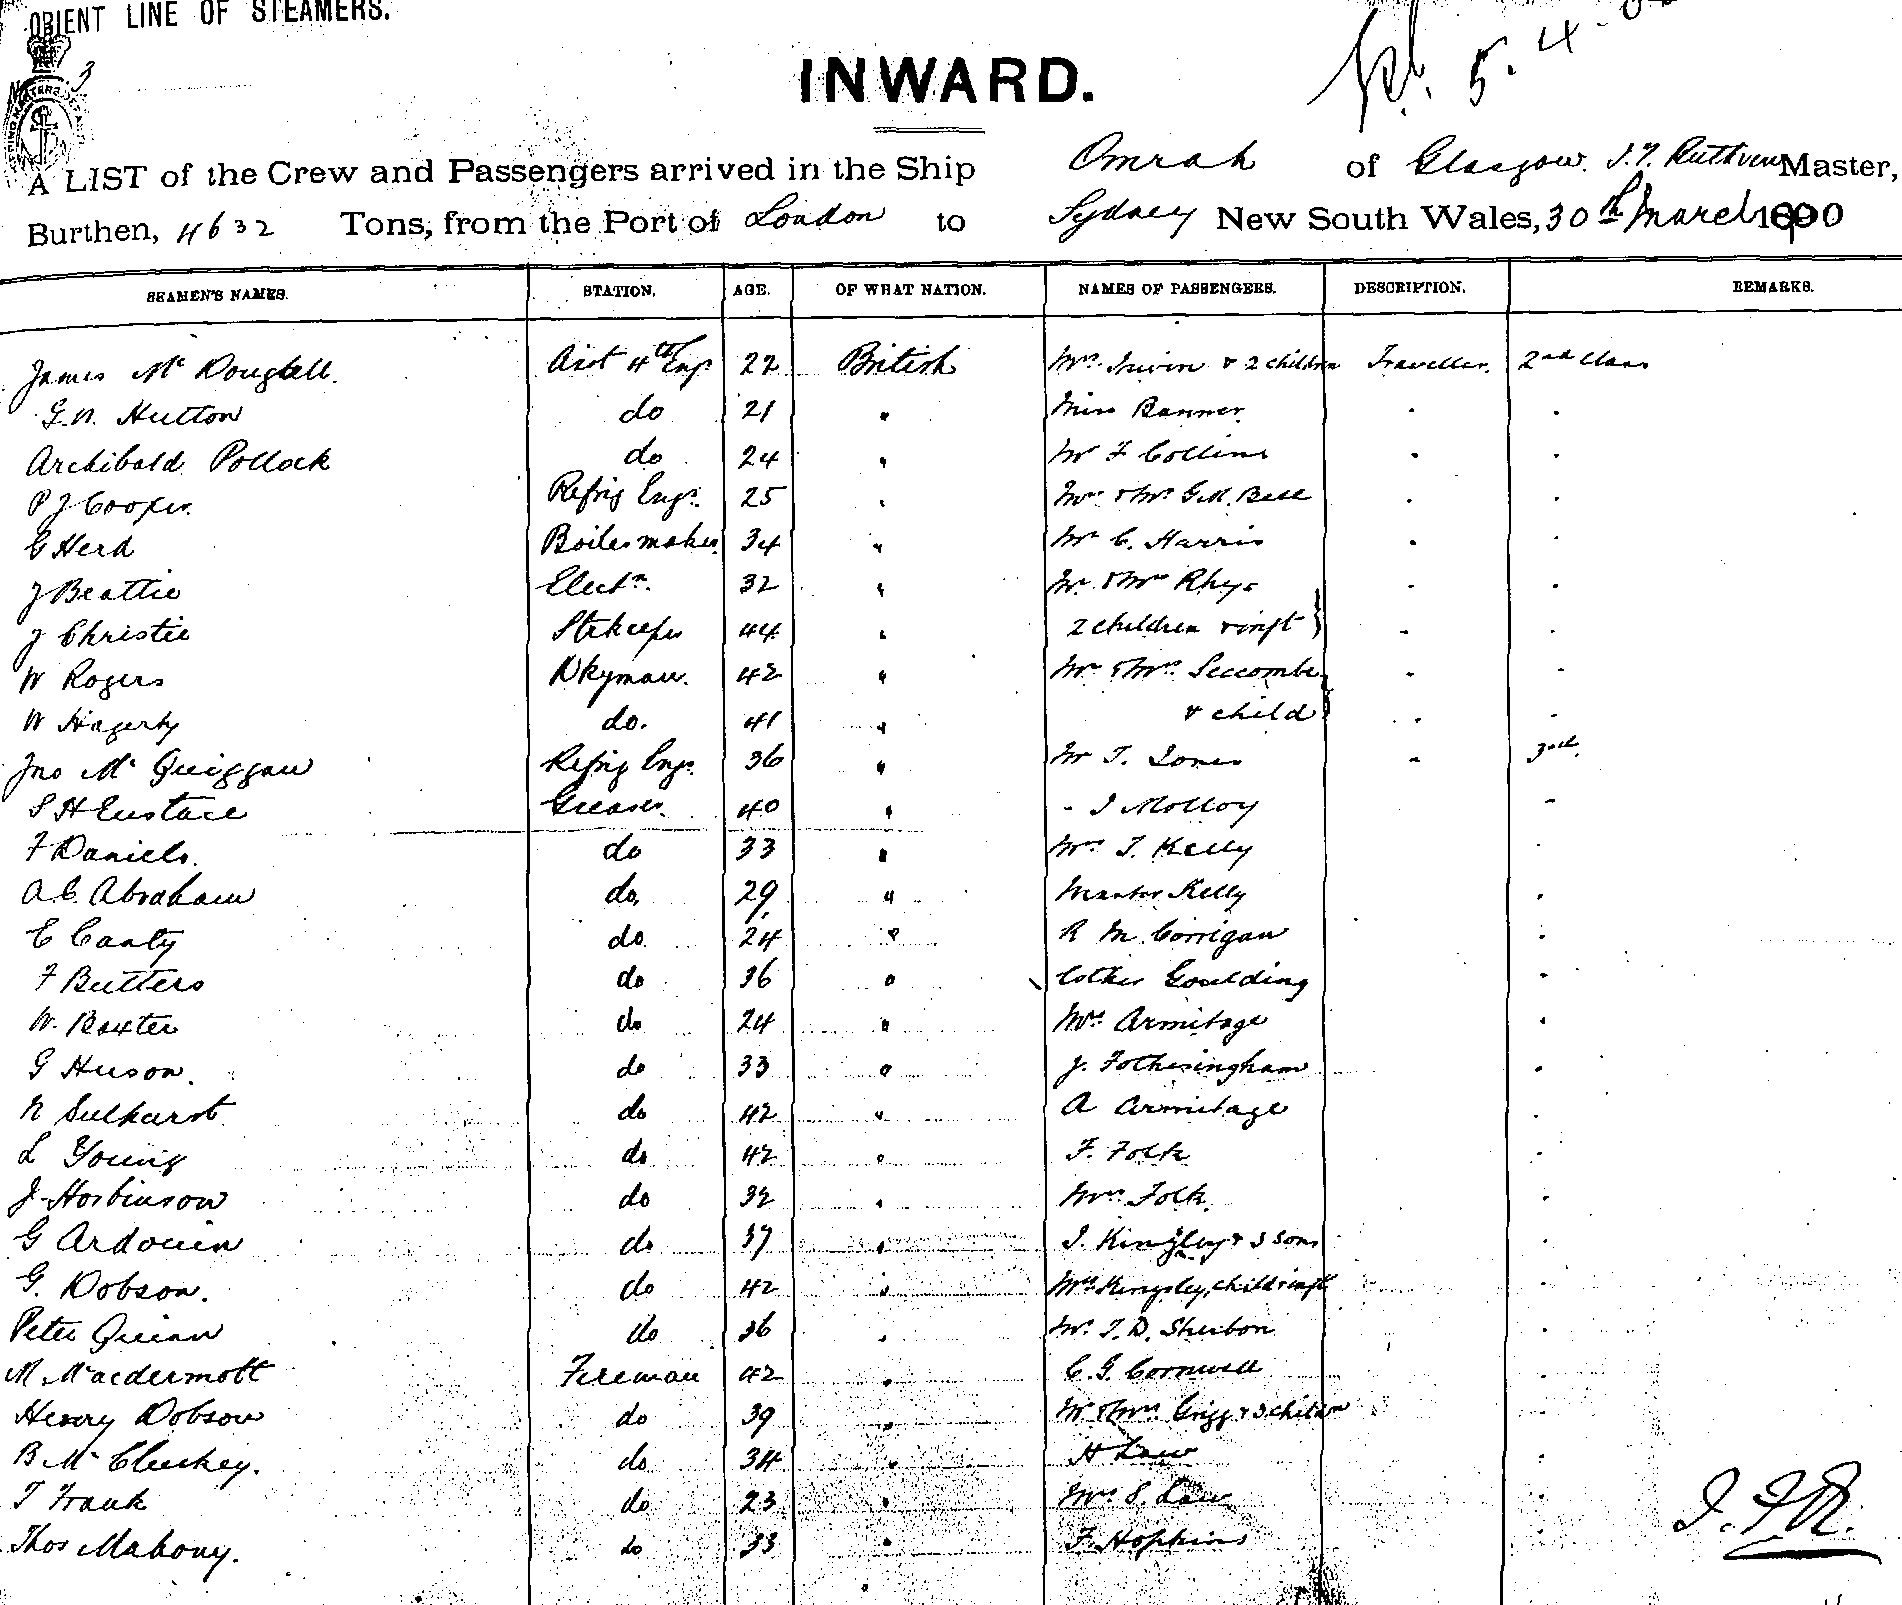 ORIENT LINE OF STEAMERS.
3
5.4.
INWARD.
A LIST of the Crew and Passengers arrived in the Ship Omrah of Glasgow. J.F. Ruthven Master,
Burthen, 4632 Tons, from the Port of London to Sydney New South Wales, 30th March 1900
SEAMEN'S NAMES. STATION. AGE. OF WHAT NATION. NAMES OF PASSENGERS. DESCRIPTION. REMARKS.
James Mc Dougall. Asst 4th Engr 22 British Mrs Irwin & 2 children Traveller. 2nd Class
G.N. Hutton do 21 " Miss Banner " "
Archibald Pollock do 24 " Mr F Collins " "
P J Cooper. Refrig Engr. 25 " Mr & Mrs G.M. Bell " "
G Herd Boilermaker 34 " Mr C. Harris " "
J Beattie Electn. 32 " Mr & Mrs Rhys " "
J Christie Stkeeper 44 " 2 children & inft } " "
W Rogers Dkyman. 42 " Mr & Mrs Seccombe " "
W Hagerty do. 41 " & child } " "
Jno Mc Quiggan Refrig Engr. 36 " Mr T. Jones " 3rd.
S H Eustace Greaser. 40 " " J Molloy "
F Daniels. do 33 " Mrs T. Kelly "
A C. Abraham do, 29 " Master Kelly "
C Canty do. 24 " R M. Corrigan "
F Butters do 36 " Goulding "
W. Baxter do 24 " Mrs Armitage "
G Huson. do 33 " J. Fotheringham "
N Sulhurst do 42 " A Armitage "
L Young do 42 " F. Folk "
J. Hosbinson do 32 " Mrs Folk. "
G Ardouin do 37 " J. Kingsley & 3 sons "
G. Dobson. do 42 " Mrs Kingsley, child & inft "
Peter Quinn do 36 " Mr. T.D. Sheibon "
M Macdermott Fireman 42 " C.G. Cornwell "
Henry Dobson do 39 " Mr & Mrs Grigg & 3 childn "
B Mc Cluskey. do 34 " H Law "
T Frank do 23 " Mrs S. Law "
Thos Mahony. do 33 " F. Hopkins "
J.F.R.